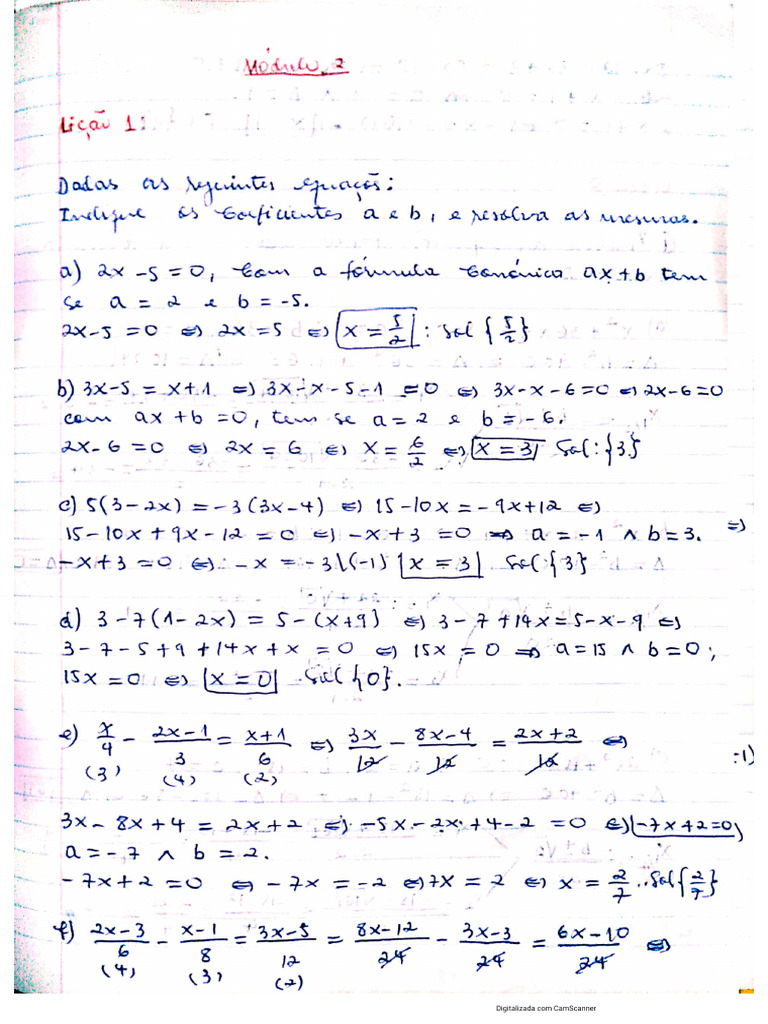 Módulo 2
Lição 1:
Dadas as seguintes equações:
Indique os coeficientes a e b, e resolva as mesmas.
a) 2x - 5 = 0, com a fórmula canónica ax + b tem
se a = 2 e b = -5.
2x - 5 = 0 ⇔ 2x = 5 ⇔ x = 5/2 : Sol {5/2}
b) 3x - 5 = x + 1 ⇔ 3x - x - 5 - 1 = 0 ⇔ 3x - x - 6 = 0 ⇔ 2x - 6 = 0
com ax + b = 0, tem se a = 2 e b = -6.
2x - 6 = 0 ⇔ 2x = 6 ⇔ x = 6/2 ⇔ x = 3 Sol: {3}
c) 5(3 - 2x) = -3(3x - 4) ⇔ 15 - 10x = -9x + 12 ⇔
15 - 10x + 9x - 12 = 0 ⇔ -x + 3 = 0 ⇒ a = -1 ∧ b = 3. ⇒
-x + 3 = 0 ⇔ -x = -3 \(-1) x = 3 Sol {3}
d) 3 - 7(1 - 2x) = 5 - (x + 9) ⇔ 3 - 7 + 14x = 5 - x - 9 ⇔
3 - 7 - 5 + 9 + 14x + x = 0 ⇔ 15x = 0 ⇒ a = 15 ∧ b = 0;
15x = 0 ⇔ x = 0 Sol {0}.
e) x/4 - 2x-1/3 = x+1/6 ⇔ 3x/12 - 8x-4/12 = 2x+2/12 ⇔
(3) (4) (2)
:1)
3x - 8x + 4 = 2x + 2 ⇔ -5x - 2x + 4 - 2 = 0 ⇔ -7x + 2 = 0,
a = -7 ∧ b = 2.
-7x + 2 = 0 ⇔ -7x = -2 ⇔ 7x = 2 ⇔ x = 2/7 . Sol {2/7}
f) 2x-3/6 - x-1/8 = 3x-5/12 = 8x-12/24 - 3x-3/24 = 6x-10/24 ⇔
(4) (3) (2)
Digitalizada com CamScanner